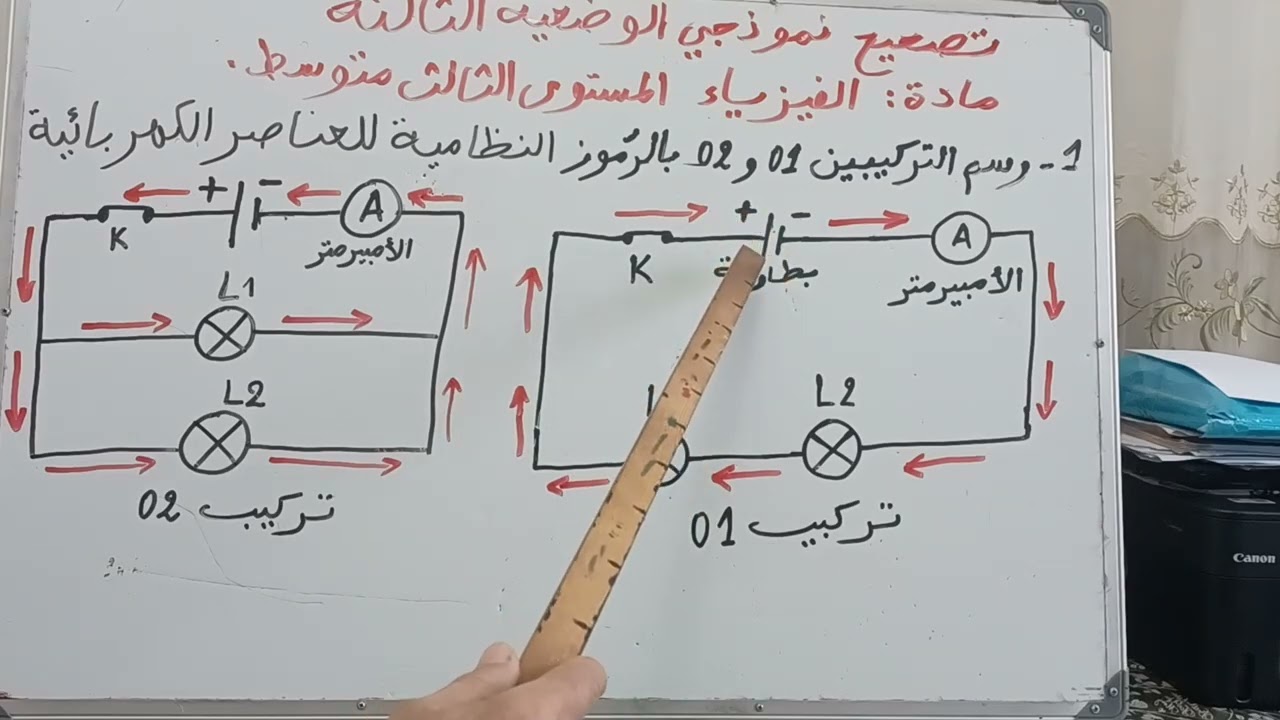 تصحيح نموذجي الوضعية الثالثة
مادة: الفيزياء المستوى الثالث متوسط.
1- رسم التركيبين 01 و 02 بالرموز النظامية للعناصر الكهربائية
+ -
A
K
الأمبيرمتر
L2
تركيب 01
+ -
A
K
الأمبيرمتر
L1
L2
تركيب 02
Canon